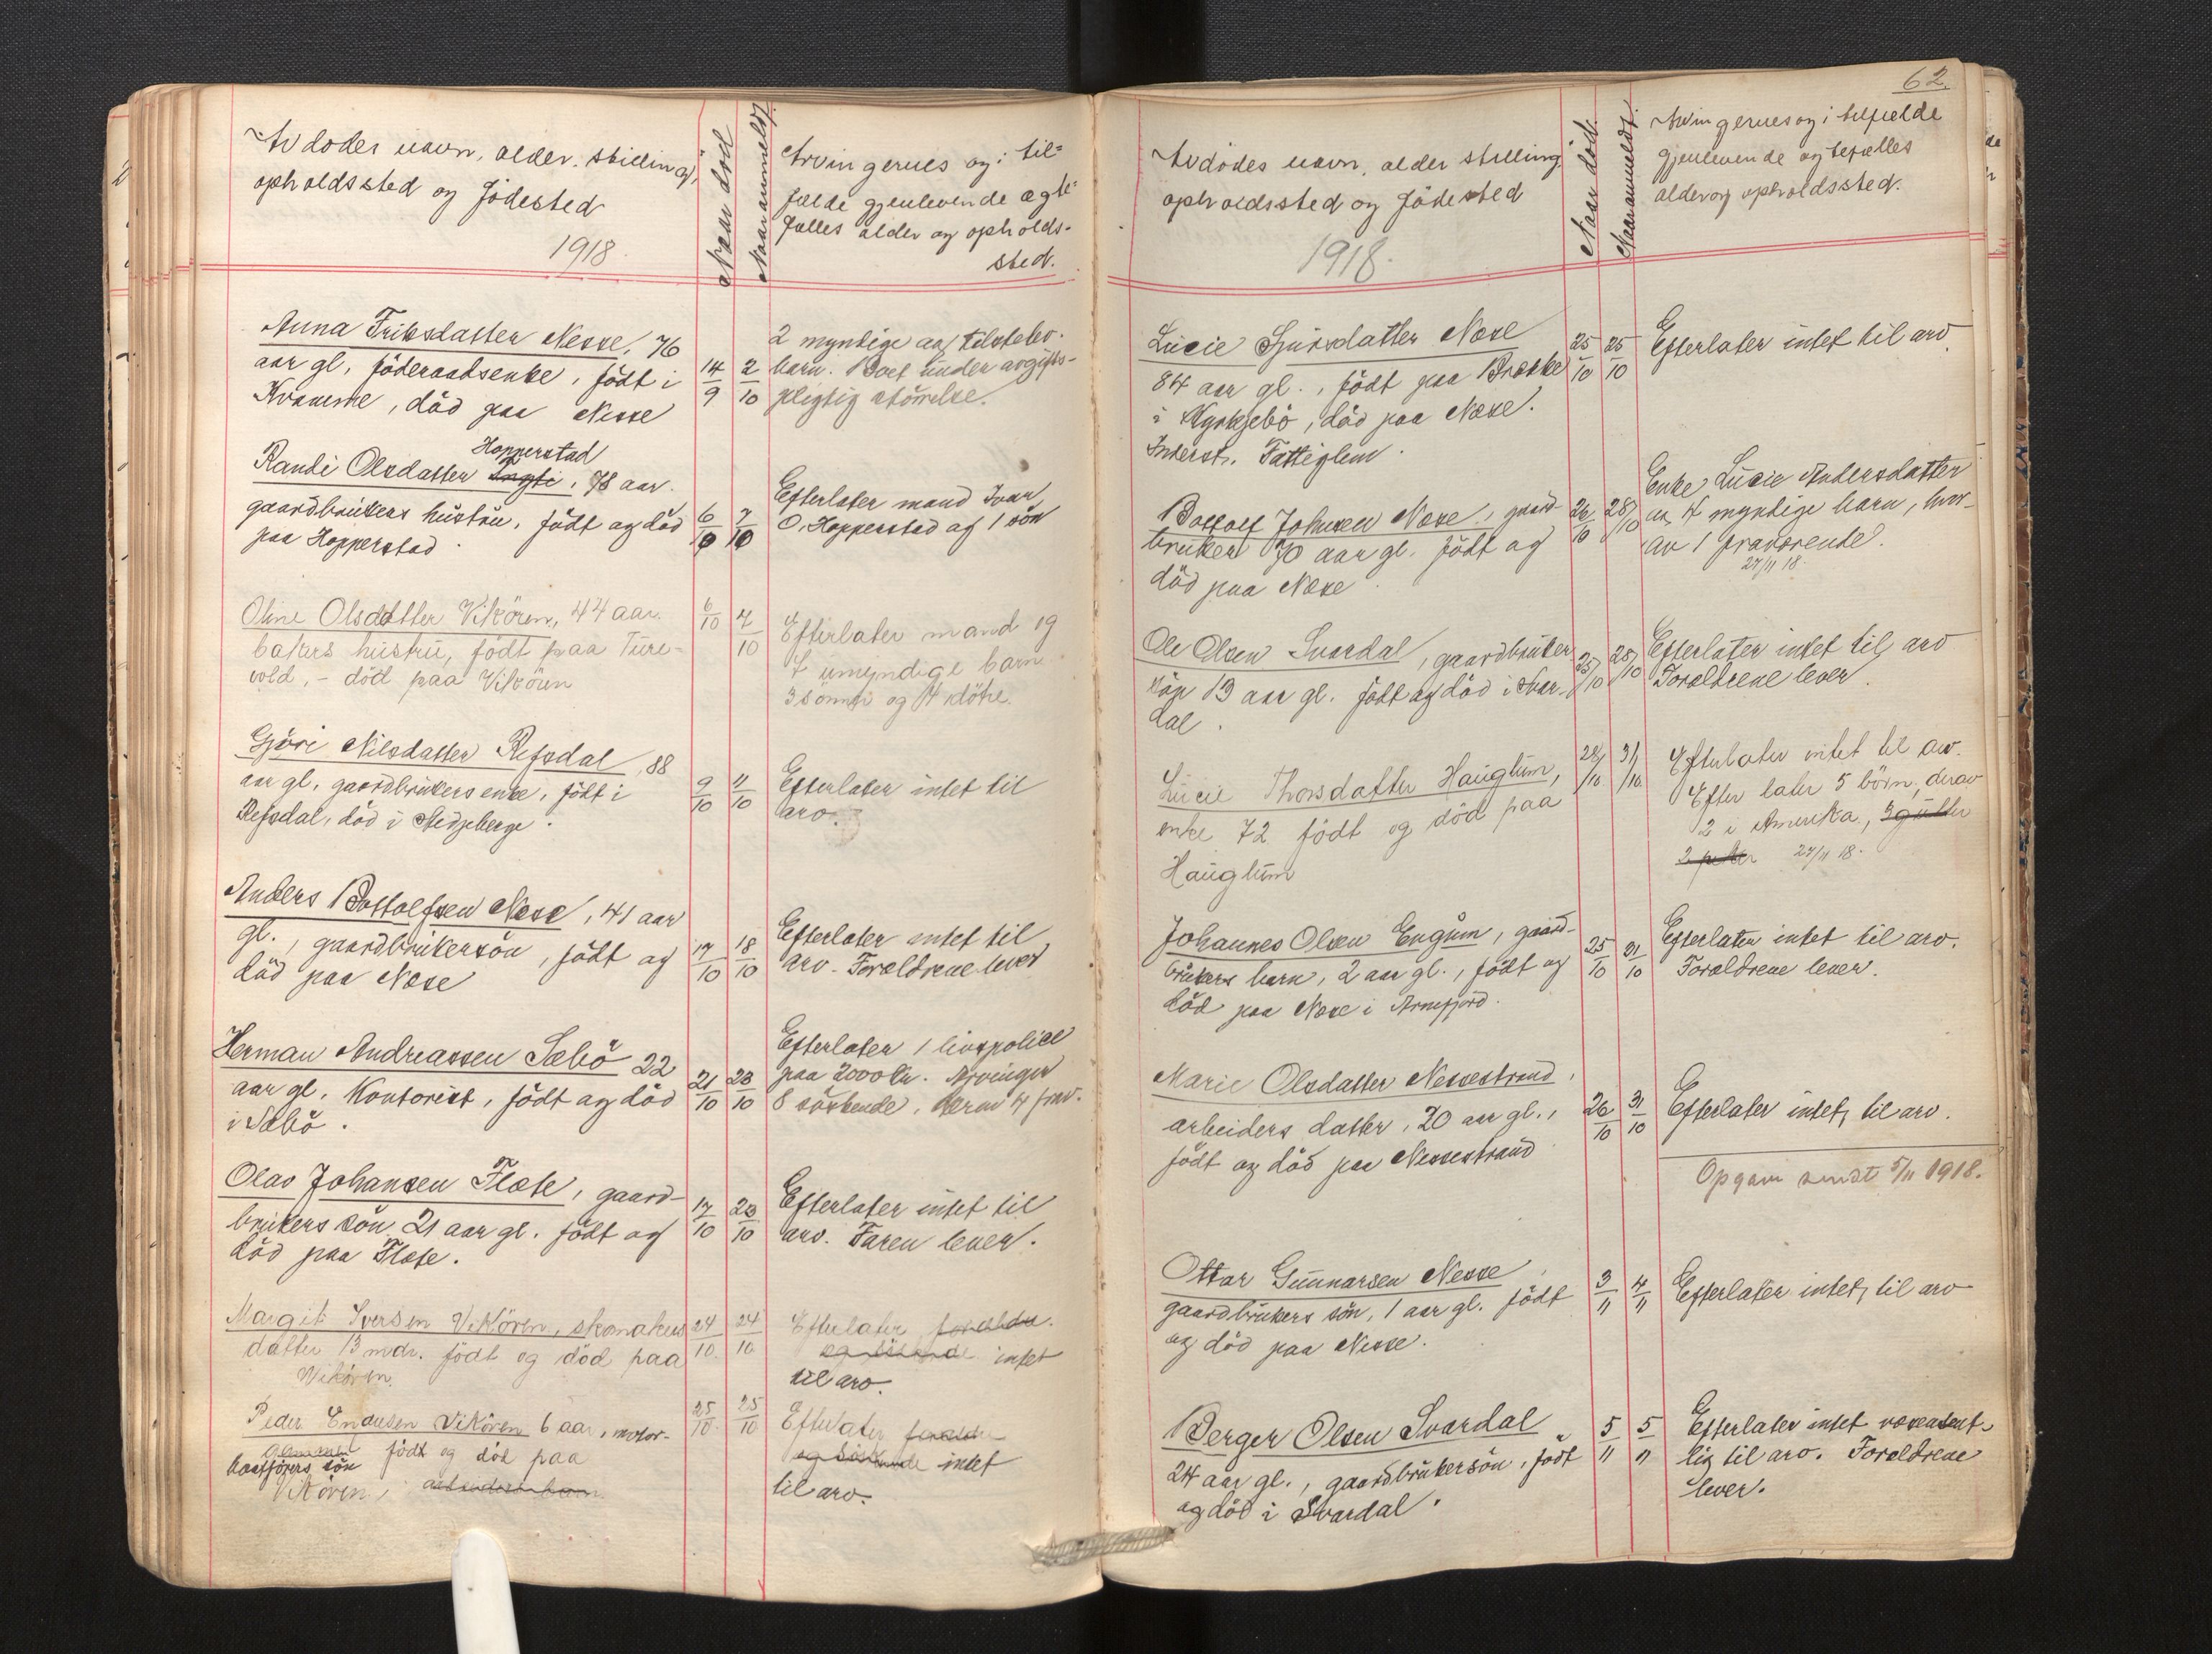 Avdödes navn, alder, stilling,
opholdssted og födested
1918.
Naar död
Naar anmeldt.
Arvingernes og i til-
fælde gjenlevende ægte-
fælles alder og opholds-
sted.
Anna Eriksdatter Nesse, 76
aar gl, föderaadsenke, födt i
Kvamme, död paa Nesse
14/9
2/10
2 myndige og tilstedev.
barn. Boet under avgifts-
pligtig störrelse.
Hopperstad
Randi Olsdatter, 78 aar.
gaardbrukers hustru, födt og död
paa Hopperstad.
6/10
7/10
Efterlater mand Ivar
O. Hopperstad og 1 sön
Oline Olsdatter Vikören, 44 aar.
bakers hustru, födt paa Ture-
vold, - död paa Vikören
6/10
7/10
Efterlater mand og
7 umyndige barn
3 sönner og 4 dötre.
Gjöri Nilsdatter Refsdal, 88
aar gl, gaardbrukers enke, födt i
Refsdal, död i Stedjeberge.
9/10
11/10
Efterlater intet til
arv.
Anders Bottolfsen Nese, 41 aar
gl., gaardbrukersön, födt og
död paa Nese
17/10
18/10
Efterlater intet til
arv. Forældrene lever
Herman Andreassen Sæbö 22
aar gl. Kontorist, födt og död
i Sæbö.
21/10
23/10
Efterlater 1 livspolice
paa 2000 kr. Arvinger
8 söskende, derav 4 frav.
Olav Johansen Flate, gaard-
brukers sön 21 aar gl. födt og
död paa Flate.
17/10
23/10
Efterlater intet til
arv. Faren lever.
Margit Iversen Vikören, skomakers
datter 13 mdr. födt og död paa
Vikören.
24/10
24/10
Efterlater forældre
og söskende intet
til arv.
Peder Endresen Vikören 6 aar, motor-
baatförers sön födt og död paa
Vikören, arbeidersbarn
25/10
25/10
Efterlater forældre
og söskende intet
til arv.
62.
Avdödes navn, alder stilling
opholdssted og födested
1918.
Naar död.
Naar anmeldt.
Arvingernes og i tilfælde
gjenlevende egtefælles
alder og opholdssted.
Lucie Sjursdatter Nese
84 aar gl., födt paa Brække
i Kyrkjebö, död paa Nese.
Inderst. Fattiglem.
25/10
25/10
Efterlater intet til arv.
Bottolf Johnsen Nese, gaard-
bruker 70 aar gl. födt og
död paa Nese.
26/10
28/10
Enke Lucie Andersdatter
og 4 myndige barn, hvor-
av 1 fraværende.
27/11 18.
Ole Olsen Svardal, gaardbruker
sön 13 aar gl. födt og död i Svar-
dal.
25/10
28/10
Efterlater intet til arv
Forældrene lever.
Lucie Thorsdatter Hauglum,
enke 72 födt og död paa
Hauglum
28/10
31/10
Efterlater intet til arv.
Efter later 5 börn, derav
2 i Amerika, 3 gutter
27/11 18.
Johannes Olsen Engum, gaard-
brukers barn, 2 aar gl., födt og
död paa Nese i Arnefjord.
25/10
31/10
Efterlater intet til arv.
Forældrene lever.
Marie Olsdatter Nessestrand,
arbeiders datter, 20 aar gl.,
födt og död paa Nessestrand
26/10
31/10
Efterlater intet til arv.
Opgave sendt 5/11 1918.
Ottar Gunnarsen Nesse,
gaardbrukers sön, 1 aar gl. födt
og död paa Nesse.
3/11
4/11
Efterlater intet til arv
Berger Olsen Svardal
24 aar gl., gaardbrukersön, födt
og död i Svardal.
5/11
5/11
Efterlater intet væsent-
lig til arv. Forældrene
lever.